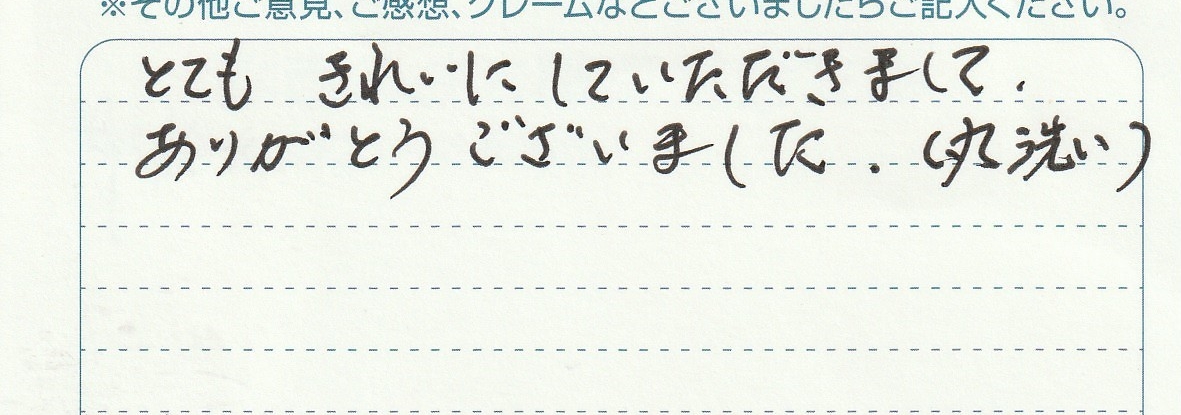 ※その他ご意見、ご感想、クレームなどございましたらご記入ください。
とても きれいにしていただきまして.
ありがとうございました.(丸洗い)